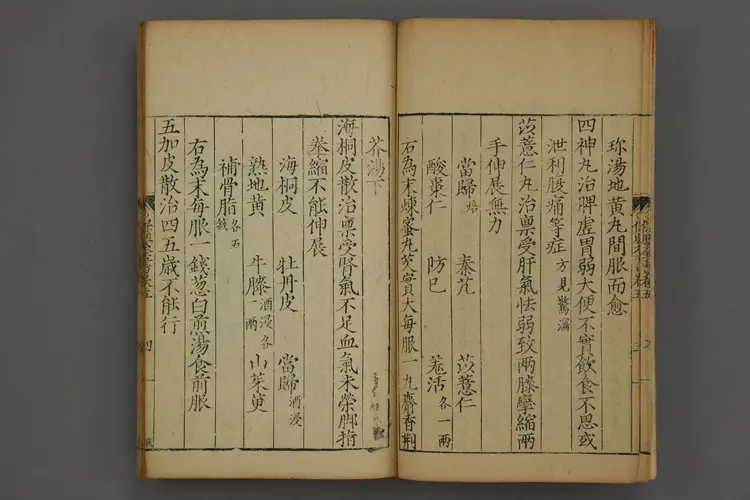 珍湯地黃丸間服而愈
四神丸治脾虛胃弱大便不實飲食不思或
泄利腹痛等症 方見驚瀉
薏苡仁丸治禀受肝氣怯弱致兩膝攣縮兩
手伸展無力
當歸 焙 秦艽 薏苡仁
酸棗仁 防巳 羗活 各一兩
右為末煉蜜丸芡實大每服一丸麝香荆
芥湯下
海桐皮散治禀受腎氣不足血氣未榮脚指
拳縮不能伸展
海桐皮 牡丹皮 當歸 酒浸
熟地黃 牛膝 酒浸各一兩 山茱萸
補骨脂 各五錢
右為末每服一錢葱白煎湯食前服
五加皮散治四五歲不能行
四